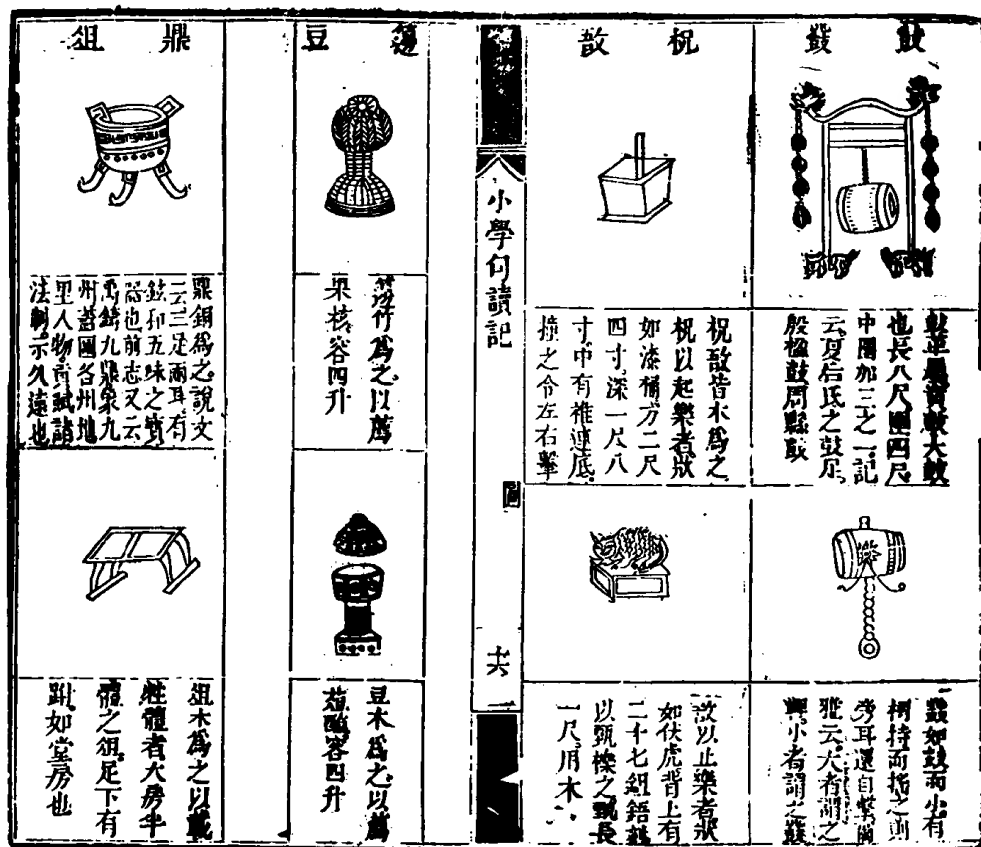 鼓鼗
鼓革爲
也長八尺圍四尺
中圍加三之一記
云夏后氏之鼓足
殷楹鼓周縣鼓
鼗如鼓而小有
柄持而搖之則
旁耳還自擊爾
雅云大者謂之
小者謂之
柷敔
柷敔皆木爲之
柷以起樂者狀
如漆桶方二尺
四寸深一尺八
寸中有椎連底
撞之令左右擊
敔以止樂者狀
如伏虎背上有
二十七鉏鋙
以甄櫟之甄長
一尺用木
小學句讀記
圖
十六
籩豆
籩竹爲之以薦
果核容四升
豆木爲之以薦
菹醢容四升
鼎俎
鼎銅爲之說文
云三足兩耳有
鉉和五味之寶
器也前志又云
禹鑄九鼎象九
州蓋圖各州地
里人物貢賦諸
法制示久遠也
俎木爲之以載
牲體者大房半
體之俎足下有
跗如堂房也